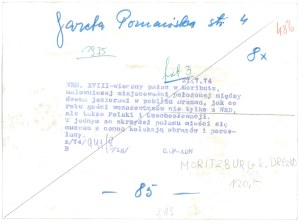 Gazeta Poznańska str 4
486
1975
8x
fot 3
NRD. XVIII-wieczny pałac w Moritzburg,
malowniczej miejscowości położonej między
dwoma jeziorami w pobliżu Drezna, jak co
roku gości wczasowiczów nie tylko z NRD,
ale także Polski i Czechosłowacji.
W jednym ze skrzydeł pałacu mieści się
muzeum z cenną kolekcją obrazów i porce-
lany.
B
CAF-ADN
MORITZBURG k. DREZNA
120,-
— 85 —